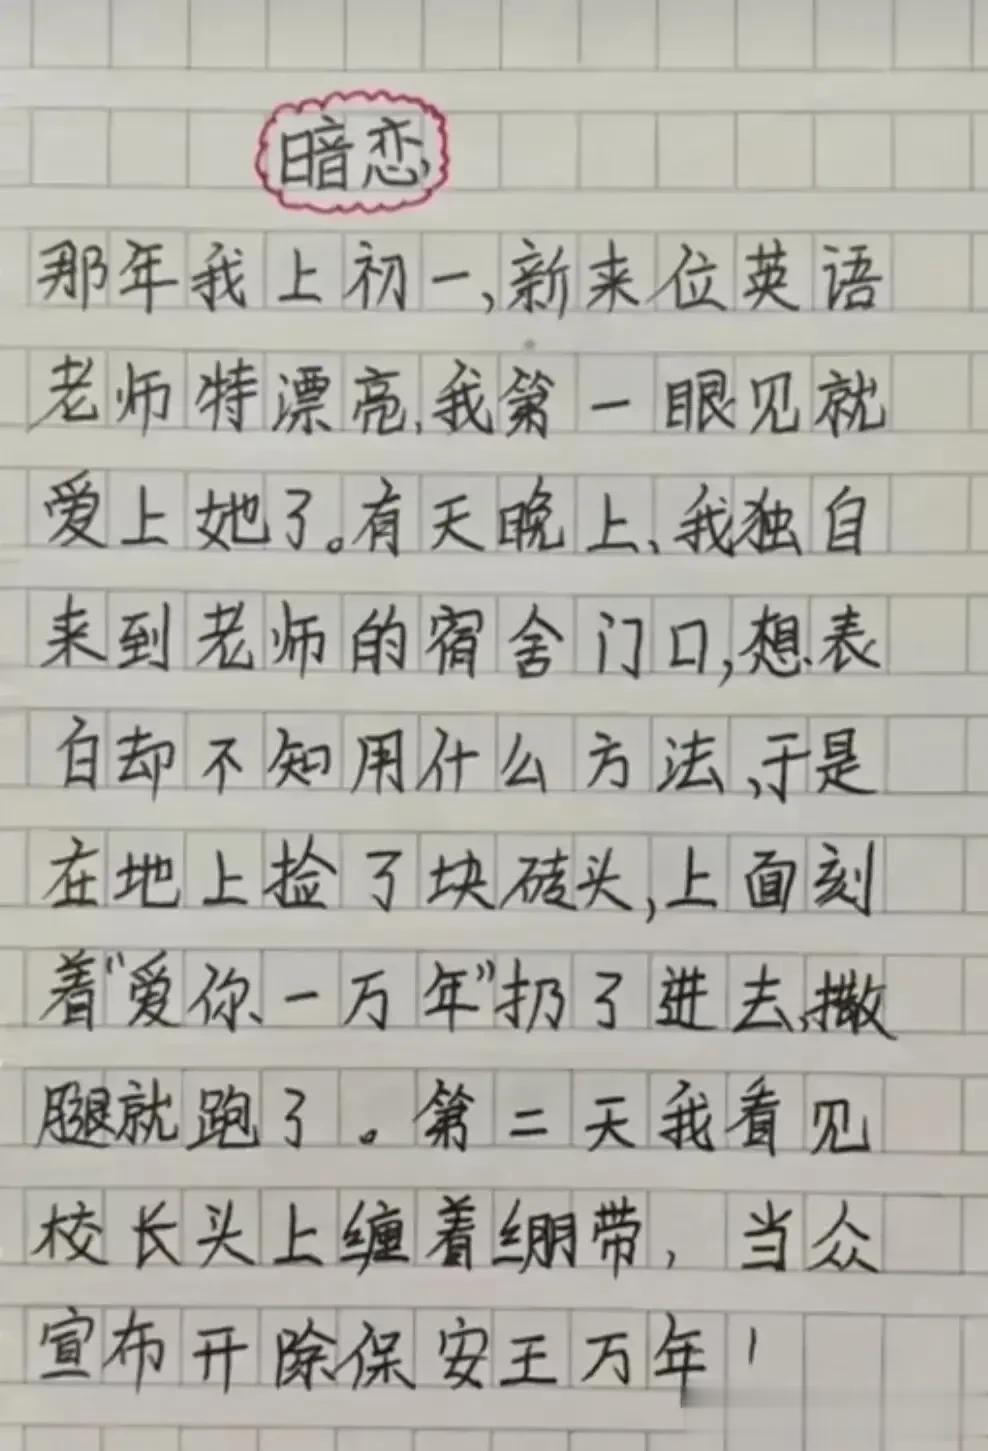 暗恋
那年我上初一,新来位英语
老师特漂亮,我第一眼见就
爱上她了。有天晚上、我独自
来到老师的宿舍门口,想表
白却不知用什么方法,于是
在地上捡了块砖头,上面刻
着“爱你一万年”扔了进去,撒
腿就跑了。第二天我看见
校长头上缠着绷带,当众
宣布开除保安王万年!